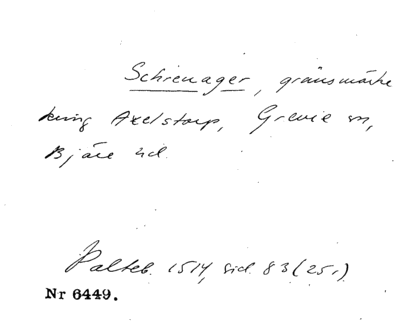 Schrenager, gränsmärke
kring Axelstorp, Grevie sn,
Bjäre hd.
Palteb. 1514, sid. 83 (25r)
Nr 6449.